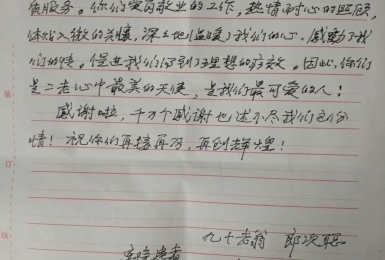 质服务。你们爱岗敬业的工作，热情耐心的照顾，
体贴入微的关怀，深深地温暖了我们的心、感动了我
们的情。促进我们得到了理想的疗效。因此，你们
是二老心中最美的天使，是我们最可爱的人！
感谢啦，千万个感谢也述不尽我们这份
情！祝你们再接再厉，再创辉煌！
九十老翁 郎次聪
患者
装
订
线